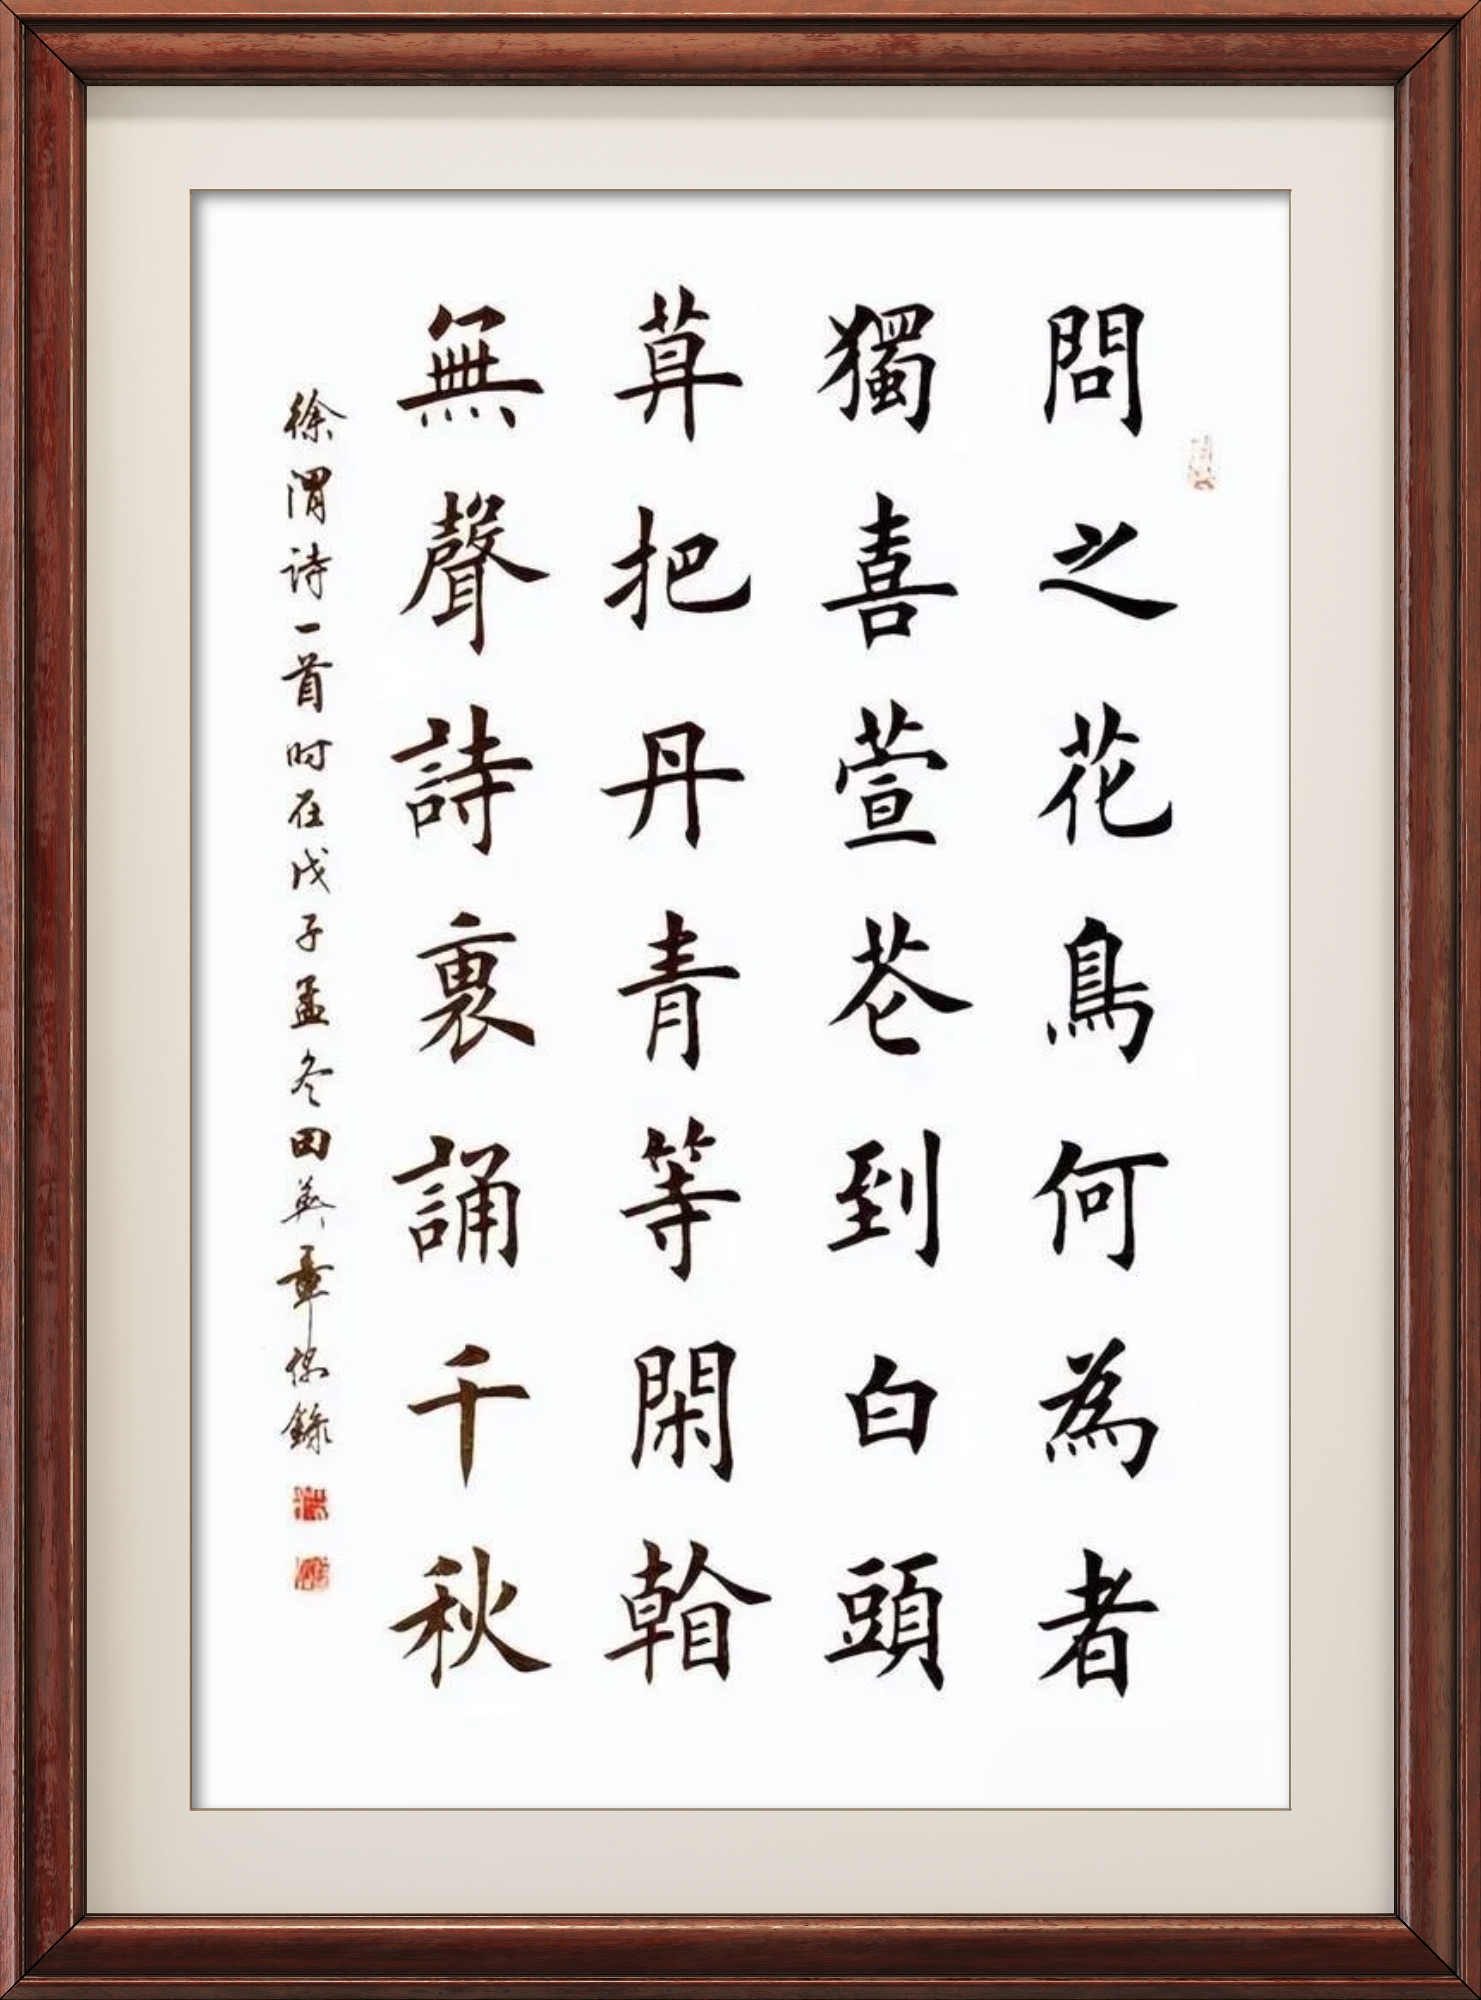 問之花鳥何為者
獨喜萱苍到白頭
草把丹青等閑翰
無聲詩裏誦千秋
徐渭诗一首时在戊子孟冬田英章
錄